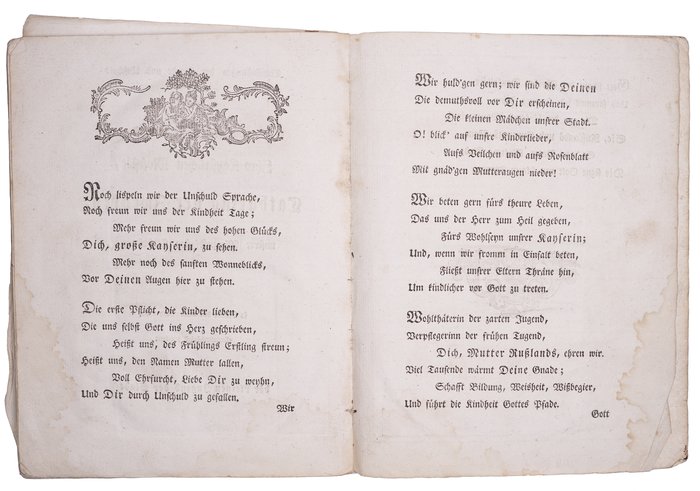 Noch lispeln wir der Unschuld Sprache,
Noch freun wir uns der Kindheit Tage;
Mehr freun wir uns des hohen Glücks,
Dich, große Kayserin, zu sehen.
Mehr noch des sanften Wonneblicks,
Vor Deinen Augen hier zu stehen.
Die erste Pflicht, die Kinder lieben,
Die uns selbst Gott ins Herz geschrieben,
Heißt uns, des Frühlings Erstling streun;
Heißt uns, den Namen Mutter lallen,
Voll Ehrfurcht, Liebe Dir zu weyhn,
Und Dir durch Unschuld zu gefallen.
Wir
Wir huld'gen gern; wir sind die Deinen
Die demuthsvoll vor Dir erscheinen,
Die kleinen Mädchen unsrer Stadt.
O! blick' auf unsre Kinderlieder,
Aufs Veilchen und aufs Rosenblatt
Mit gnäd'gen Mutteraugen nieder!
Wir beten gern fürs theure Leben,
Das uns der Herr zum Heil gegeben,
Fürs Wohlseyn unsrer Kayserin;
Und, wenn wir fromm in Einfalt beten,
Fließt unsrer Eltern Thräne hin,
Um kindlicher vor Gott zu treten.
Wohlthäterin der zarten Jugend,
Verpflegerinn der frühen Tugend,
Dich, Mutter Rußlands, ehren wir.
Viel Tausende wärmt Deine Gnade;
Schafft Bildung, Weisheit, Wißbegier,
Und führt die Kindheit Gottes Pfade.
Gott